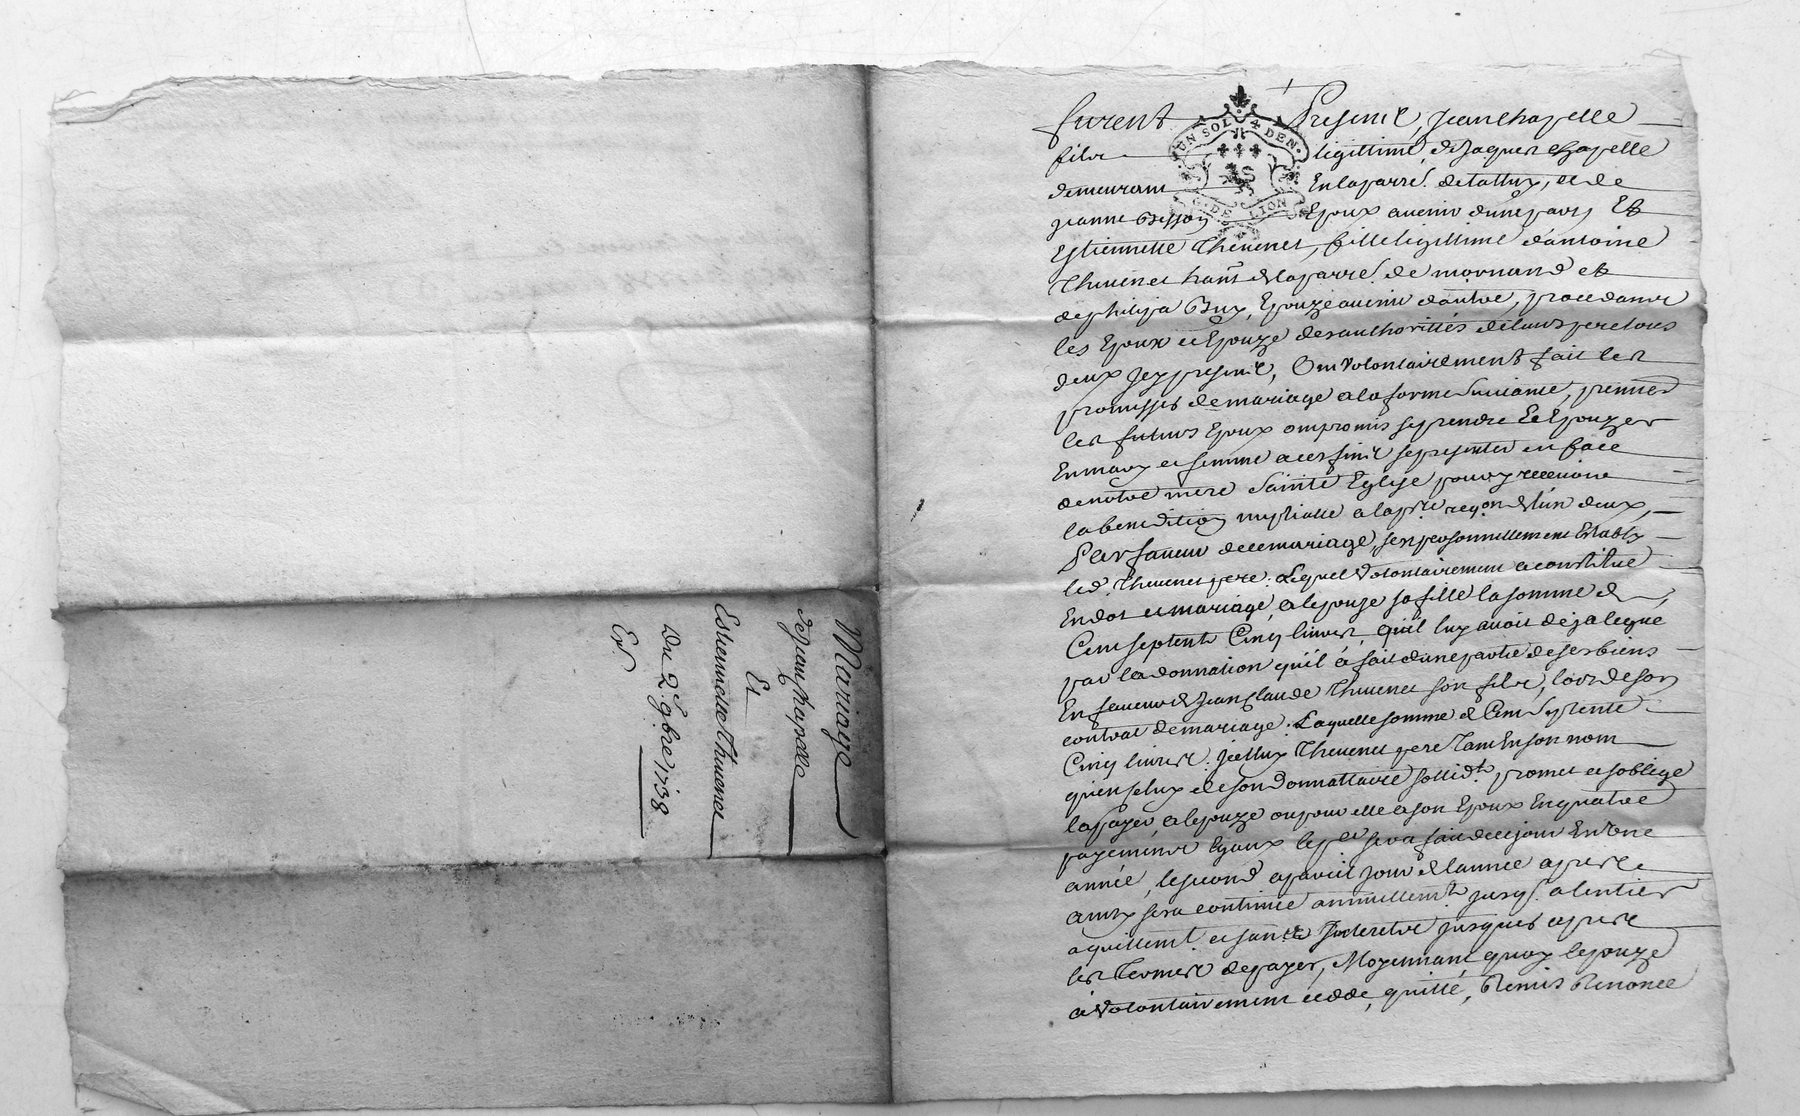 Mariage
de Jean Chapelle
Et
Estiennette Thevenet
Du 2e 9bre 1738
Exp
UN SOL 4 DEN.
G. DE LION
furent Presents, Jean Chapelle
fils legittime de Jaques Chapelle
demeurant En la parre. de talluy, et de
jeanne Besson Epoux avenir d'une part Et
Estiennette Thevenet, fille legittime d'antoine
Thevenet hant. de la parre. de mornand et
de philipa Bux, Epouze avenir d'autre, procedants
les Epoux et Epouze des authorittés de leurs pere tous
deux jcy presents, Ont volontairement fait les
promesses de mariage a la forme suivante, premiert
les futurs Epoux ont promis se prendre Et Epouzer
En mary et femme a ces fins se presenter en face
de notre mere Sainte Eglise pour y recevoir
la benediction nuptialle a la pre. reqon. de l'un deux,
Par faveur de ce mariage, s'est personnellement Estably
led. Thevenet pere. Lequel volontairement a constitué
En dot et mariage, a lepouze sa fille la somme de
Cent septente Cinq livres, qu'il luy avoit deja legué
par la donnation qu'il a fait d'une partie de ses biens
En faveur de Jean Claude Thevenet son fils, lors de son
contrat de mariage. Laquelle somme de Cent Septente
Cinq livres. jcelluy Thevenet pere tant En son nom
qu'en celuy de son donnattaire sollidt. promet et s'oblige
la payer, a lepouze ou pour elle a son Epoux En quatre
payements Egaux le per sera fait de ce jour En Une
année, le second a pareil jour de l'année apres et
ainsy sera continué annuellemt. jusq. a l'entier
aquittemt et sans Jnterets jusques apres
les Termes de payer, Moyennant quoy lepouze
a volontairement cedde, quitté, Remis Renoncé